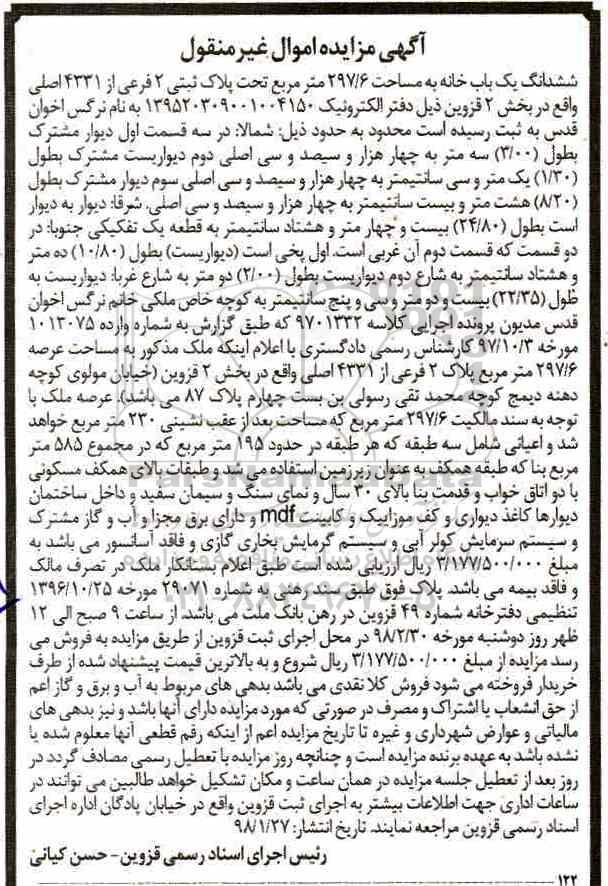 آگهی مزایده اموال غیر منقول
ششدانگ یک باب خانه به مساحت ۲۹۷/۶ متر مربع تحت پلاک ثبتی ۲ فرعی از ۴۳۳۱ اصلی
واقع در بخش ۲ قزوین ذیل دفتر الکترونیک ۱۳۹۵۲۰۳۰۹۰۰۱۰۰۴۱۵۰ به نام نرگس اخوان
قدس به ثبت رسیده است محدود به حدود ذیل: شمالا: در سه قسمت اول دیوار مشترک
بطول (۳/۰۰) سه متر به چهار هزار و سیصد و سی اصلی دوم دیواریست مشترک بطول
(۱/۳۰) یک متر و سی سانتیمتر به چهار هزار و سیصد و سی اصلی سوم دیوار مشترک بطول
(۸/۲۰) هشت متر و بیست سانتیمتر به چهار هزار و سیصد و سی اصلی. شرقا: دیوار به دیوار
است بطول (۲۴/۸۰) بیست و چهار متر و هشتاد سانتیمتر به قطعه یک تفکیکی جنوبا: در
دو قسمت که قسمت دوم آن غربی است. اول پخی است (دیواریست) بطول (۱۰/۸۰) ده متر
و هشتاد سانتیمتر به شارع دوم دیواریست بطول (۲/۰۰) دو متر به شارع غربا: دیواریست به
طول (۲۲/۳۵) بیست و دو متر و سی و پنج سانتیمتر به کوچه خاص ملکی خانم نرگس اخوان
قدس مدیون پرونده اجرایی کلاسه ۹۷۰۱۳۳۲ که طبق گزارش به شماره وارده ۱۰۱۳۰۷۵
مورخه ۹۷/۱۰/۳ کارشناس رسمی دادگستری با اعلام اینکه ملک مذکور به مساحت عرصه
۲۹۷/۶ متر مربع پلاک ۲ فرعی از ۴۳۳۱ اصلی واقع در بخش ۲ قزوین (خیابان مولوی کوچه
دهنه دیمج کوچه محمد تقی رسولی بن بست چهارم پلاک ۸۷ می باشد). عرصه ملک با
توجه به سند مالکیت ۲۹۷/۶ متر مربع که مساحت بعد از عقب نشینی ۲۳۰ متر مربع خواهد
شد و اعیانی شامل سه طبقه که هر طبقه در حدود ۱۹۵ متر مربع که در مجموع ۵۸۵ متر
مربع بنا که طبقه همکف به عنوان زیرزمین استفاده می شد و طبقات بالای همکف مسکونی
با دو اتاق خواب و قدمت بنا بالای ۳۰ سال و نمای سنگ و سیمان سفید و داخل ساختمان
دیوارها کاغذ دیواری و کف موزاییک و کابینت mdf و دارای برق مجزا و آب و گاز مشترک
و سیستم سرمایش کولر آبی و سیستم گرمایش بخاری گازی و فاقد آسانسور می باشد به
مبلغ ۳/۱۷۷/۵۰۰/۰۰۰ ریال ارزیابی شده است طبق اعلام بستانکار ملک در تصرف مالک
و فاقد بیمه می باشد. پلاک فوق طبق سند رهنی به شماره ۲۹۰۷۱ مورخه ۱۳۹۶/۱۰/۲۵
تنظیمی دفترخانه شماره ۴۹ قزوین در رهن بانک ملت می باشد. از ساعت ۹ صبح الی ۱۲
ظهر روز دوشنبه مورخه ۹۸/۲/۳۰ در محل اجرای ثبت قزوین از طریق مزایده به فروش می
رسد مزایده از مبلغ ۳/۱۷۷/۵۰۰/۰۰۰ ریال شروع و به بالاترین قیمت پیشنهاد شده از طرف
خریدار فروخته می شود فروش کلا نقدی می باشد بدهی های مربوط به آب و برق و گاز اعم
از حق انشعاب یا اشتراک و مصرف در صورتی که مورد مزایده دارای آنها باشد و نیز بدهی های
مالیاتی و عوارض شهرداری و غیره تا تاریخ مزایده اعم از اینکه رقم قطعی آنها معلوم شده یا
نشده باشد به عهده برنده مزایده است و چنانچه روز مزایده با تعطیل رسمی مصادف گردد در
روز بعد از تعطیل جلسه مزایده در همان ساعت و مکان تشکیل خواهد طالبین می توانند در
ساعات اداری جهت اطلاعات بیشتر به اجرای ثبت قزوین واقع در خیابان پادگان اداره اجرای
اسناد رسمی قزوین مراجعه نمایند. تاریخ انتشار: ۹۸/۱/۲۷
رئیس اجرای اسناد رسمی قزوین - حسن کیانی
۱۲۲
ParsNamadData